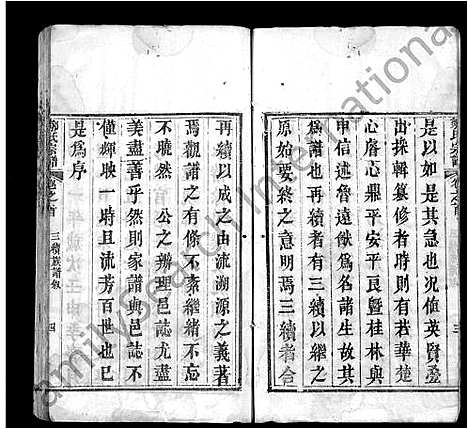 是以如是其急也況值英賢疊
出採輯纂修者時則有若華楚
心齋心鼎平安平艮暨桂林與
申信述魯遠猷為名諸生故其
為譜也再續有三續以繼之
原始要終之意明焉三續者合
三
再續以成之由流溯源之義著
焉觀譜之有條不紊繼緒不忘
不曉然 公之辦理邑誌尤盡
美盡善乎然則家譜與邑誌不
僅輝映一時且流芳百世也已
是為序
氏宗譜
卷之首
三續族譜敘
四
FamilySearch International